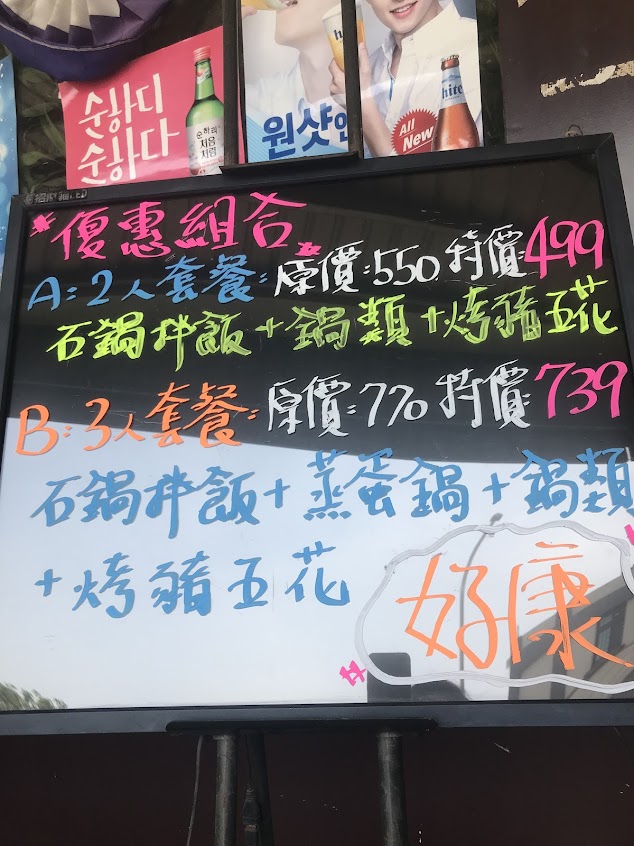 순하디
순하다
순하리
처음
처럼
원샷
hite
All
New
優惠組合
A:2人套餐:原價:550 特價:499
石鍋拌飯+鍋類+烤豬五花
B:3人套餐:原價:770 特價:739
石鍋拌飯+蒸蛋鍋+鍋類
+烤豬五花
好康